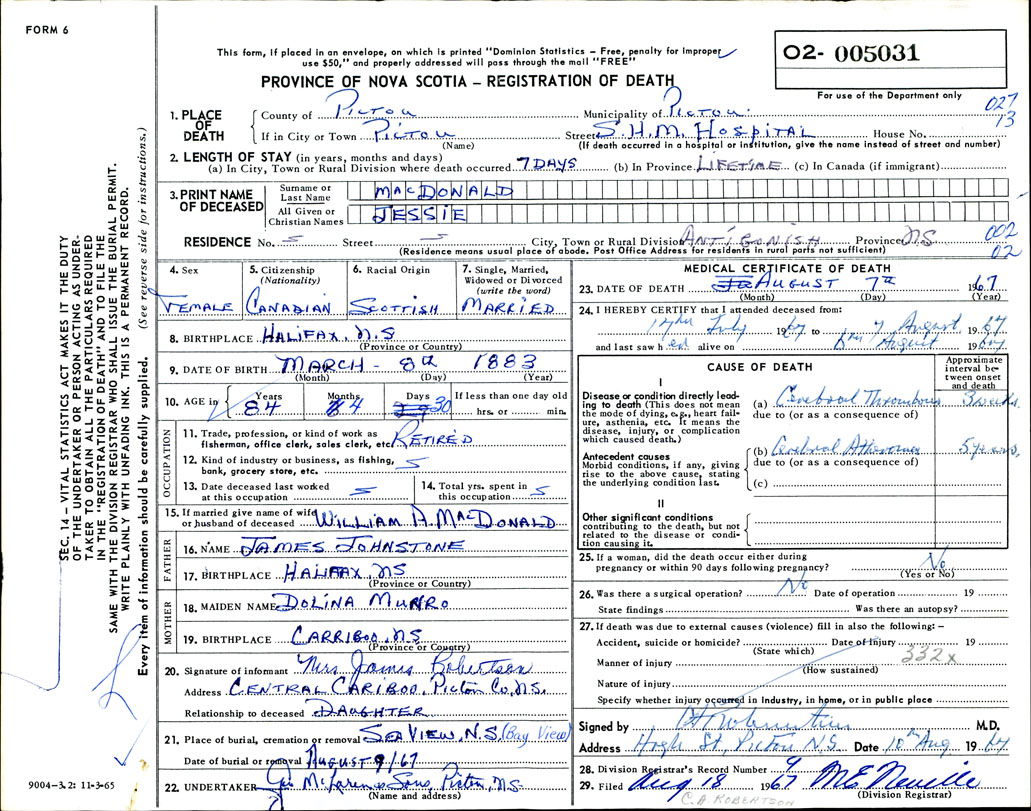 FORM 6
This form, if placed in an envelope, on which is printed "Dominion Statistics – Free, penalty for improper
use $50," and properly addressed will pass through the mail "FREE"
O2- 005031
For use of the Department only
PROVINCE OF NOVA SCOTIA – REGISTRATION OF DEATH
027
13
1. PLACE OF DEATH
County of Pictou Municipality of Pictou
If in City or Town Pictou Street S.H.M. Hospital House No.
(Name) (If death occurred in a hospital or institution, give the name instead of street and number)
2. LENGTH OF STAY (in years, months and days)
(a) In City, Town or Rural Division where death occurred 7 DAYS (b) In Province LIFETIME (c) In Canada (if immigrant)
3. PRINT NAME OF DECEASED
Surname or Last Name MACDONALD
All Given or Christian Names JESSIE
RESIDENCE No. Street City, Town or Rural Division ANTIGONISH Province NS
(Residence means usual place of abode. Post Office Address for residents in rural parts not sufficient)
002
02
4. Sex FEMALE
5. Citizenship (Nationality) CANADIAN
6. Racial Origin SCOTTISH
7. Single, Married, Widowed or Divorced (write the word) MARRIED
8. BIRTHPLACE HALIFAX, N.S
(Province or Country)
9. DATE OF BIRTH MARCH - 8th 1883
(Month) (Day) (Year)
10. AGE in Years 84 Months 4 Days 30 If less than one day old hrs. or min.
OCCUPATION
11. Trade, profession, or kind of work as fisherman, office clerk, sales clerk, etc. RETIRED
12. Kind of industry or business, as fishing, bank, grocery store, etc.
13. Date deceased last worked at this occupation
14. Total yrs. spent in this occupation
15. If married give name of wife or husband of deceased WILLIAM A. MACDONALD
FATHER
16. NAME JAMES JOHNSTONE
17. BIRTHPLACE HALIFAX, NS
(Province or Country)
MOTHER
18. MAIDEN NAME DOLINA MUNRO
19. BIRTHPLACE CARRIBOO, NS
(Province or Country)
20. Signature of informant Mrs James Robertson
Address CENTRAL CARIBOO, Pictou Co, N.S.
Relationship to deceased DAUGHTER
21. Place of burial, cremation or removal SEA VIEW, N.S. (Bay View)
Date of burial or removal AUGUST 9/67
22. UNDERTAKER Geo McLaren & Sons, Pictou, N.S.
(Name and address)
MEDICAL CERTIFICATE OF DEATH
23. DATE OF DEATH AUGUST 7th 1967
(Month) (Day) (Year)
24. I HEREBY CERTIFY that I attended deceased from:
17th July 1967 to 7 August 1967
and last saw her alive on August 1967
CAUSE OF DEATH
Approximate interval between onset and death
I
Disease or condition directly leading to death (This does not mean the mode of dying, e.g., heart failure, asthenia, etc. It means the disease, injury, or complication which caused death.)
(a) Cerebral Thrombosis 3 weeks
due to (or as a consequence of)
Antecedent causes
Morbid conditions, if any, giving rise to the above cause, stating the underlying condition last.
(b) Cerebral Atheroma 5 years,
due to (or as a consequence of)
(c)
II
Other significant conditions contributing to the death, but not related to the disease or condition causing it.
25. If a woman, did the death occur either during pregnancy or within 90 days following pregnancy? No
(Yes or No)
26. Was there a surgical operation? No Date of operation 19
State findings Was there an autopsy?
27. If death was due to external causes (violence) fill in also the following: –
Accident, suicide or homicide? Date of Injury 19
(State which)
Manner of injury 332x
(How sustained)
Nature of injury
Specify whether injury occurred in Industry, in home, or in public place
Signed by M.D.
Address High St, Pictou N.S. Date 10th Aug 1967
28. Division Registrar's Record Number 9
29. Filed Aug 18 1967 M E Neville
(Division Registrar)
C. A ROBERTSON
SEC. 14 – VITAL STATISTICS ACT MAKES IT THE DUTY
OF THE UNDERTAKER OR PERSON ACTING AS UNDER-
TAKER TO OBTAIN ALL THE PARTICULARS REQUIRED
IN THE "REGISTRATION OF DEATH" AND TO FILE THE
SAME WITH THE DIVISION REGISTRAR WHO SHALL ISSUE THE BURIAL PERMIT.
WRITE PLAINLY WITH UNFADING INK. THIS IS A PERMANENT RECORD.
Every item of information should be carefully supplied. (See reverse side for instructions.)
9004-3.2: 11-3-65